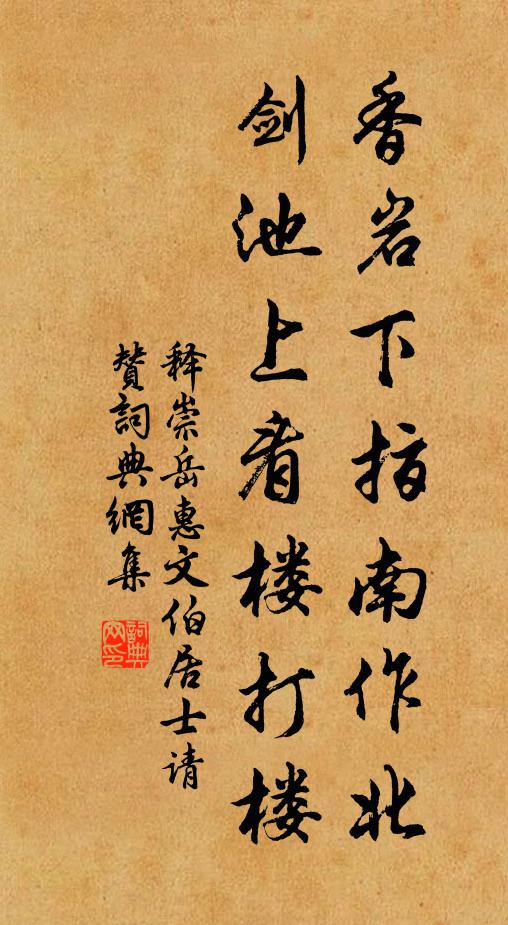 香岩下指南作北
剑池上看楼打楼
释崇岳惠文伯居士请
赞詞典網集
詞典
网印